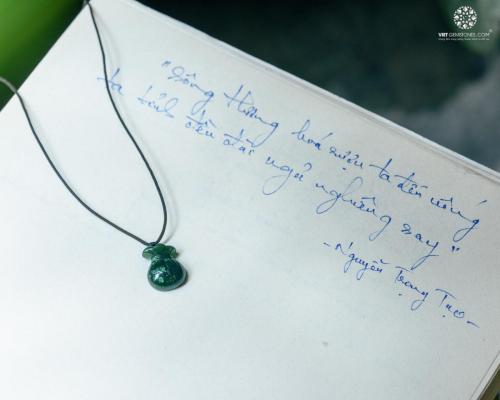 VIETGEMSTONES.COM
"Sông Hương hoá rượu ta đến uống
ta tỉnh đền đài ngả nghiêng say"
- Nguyễn Trọng Tạo -